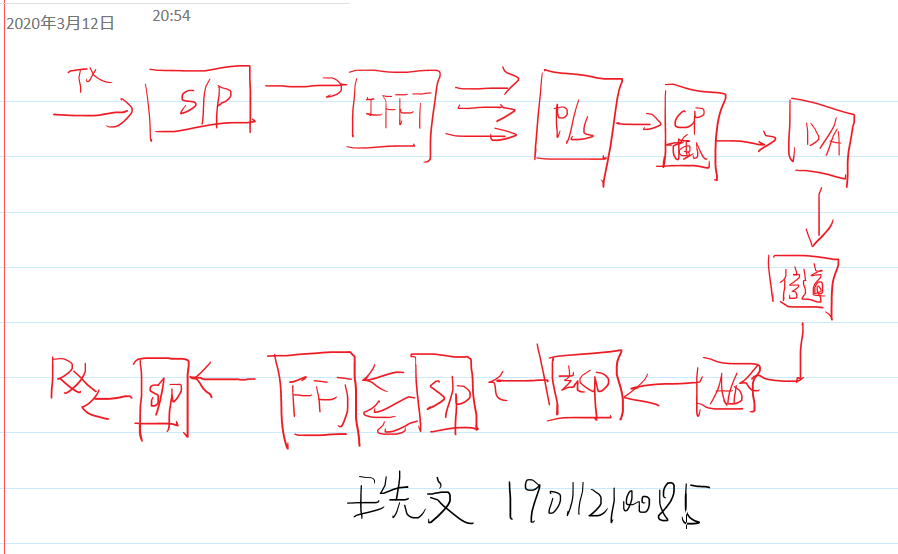 2020年3月12日 20:54
TX S/P IFFT P/S CP插入 D/A
信道
RX S/P FFT S/P 去CP A/D
王先文 19011210085